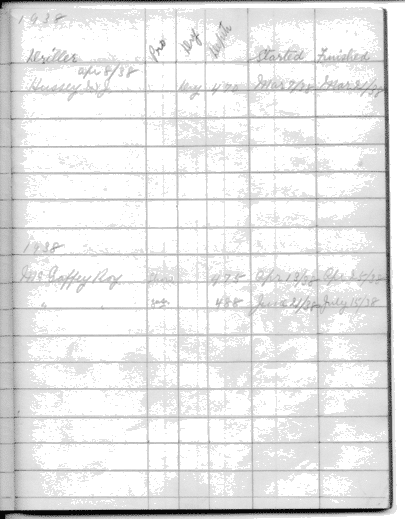 1938
Driller Pro Dry Depth Started Finished
apr 8/38
Hussey Dry 47 Mar 7/38 Mar 21/38
1938
McGaffey Roy 475 Apr 13/38 Apr 25/38
" " 488 June 21/38 July 15/38